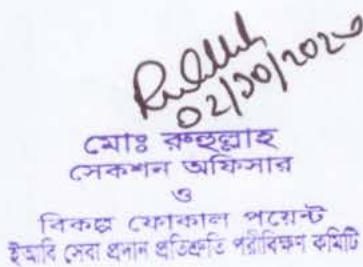 ০২/১০/২০২৩
মোঃ রুহুল্লাহ
সেকশন অফিসার
ও
বিকল্প ফোকাল পয়েন্ট
ইআবি সেবা প্রদান প্রতিশ্রুতি পরীবিক্ষণ কমিটি